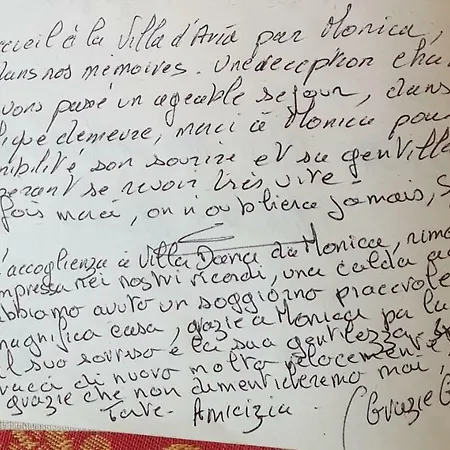 cueil à la Villa d'Aria par Monica,
dans nos mémoires. Une déception cha
vons passé un agéable séjour, dans
fique demeure, merci à Monica pour
nibilité son sourire et sa gentille
pérant se revoir très vite -
fois merci, on n'oubliera jamais,
accoglienza à Villa Daria da Monica, rima
mpressa nei nostri ricordi, una calda ac
bbiamo avuto un soggiorno piacevole
magnifica casa, grazie a Monica pa la
il suo sorriso e la sua gentilezza
di nuovo molto velocemente
grazie che non dimenticheremo mai,
Amicizia. (Grazie